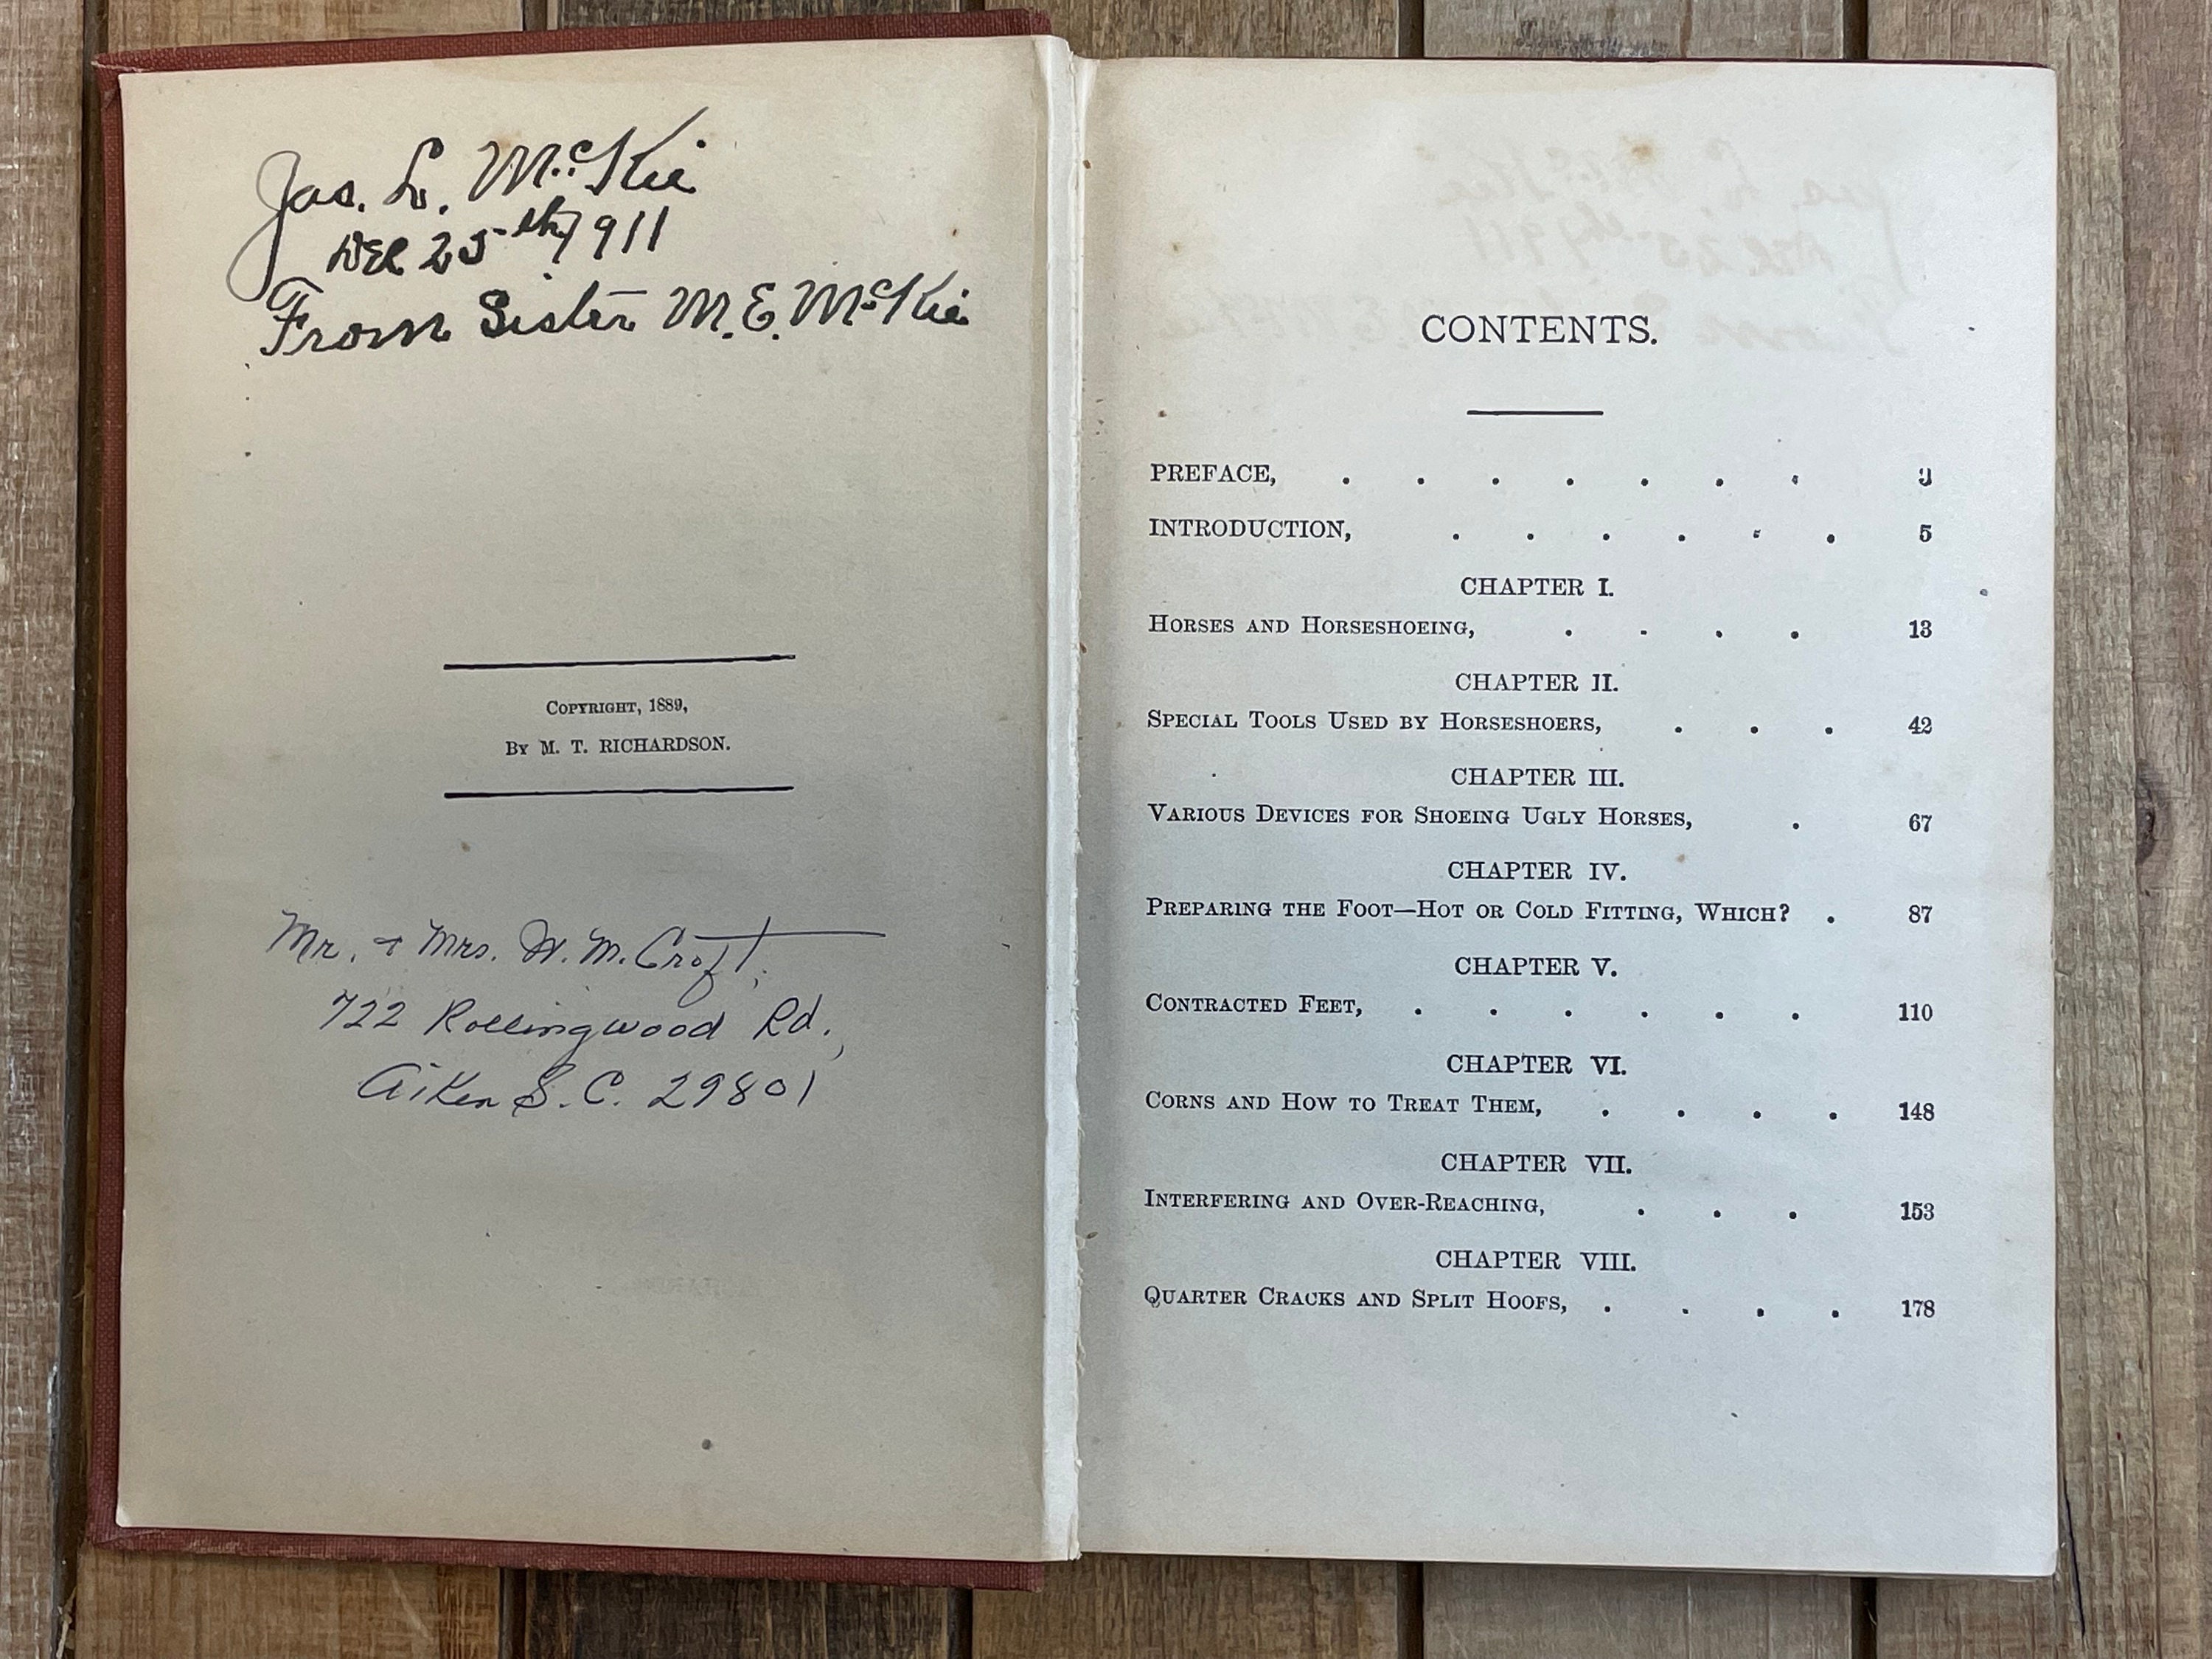 Jas. L. McKie
Dec 25th 1911
From Sister M. E. McKie
Copyright, 1889,
By M. T. RICHARDSON.
Mr. + Mrs. W. M. Croft,
722 Rollingwood Rd.,
Aiken S. C. 29801
CONTENTS.
PREFACE, . . . . . . . 3
INTRODUCTION, . . . . . . 5
CHAPTER I.
Horses and Horseshoeing, . . . . 13
CHAPTER II.
Special Tools Used by Horseshoers, . . . 42
CHAPTER III.
Various Devices for Shoeing Ugly Horses, . 67
CHAPTER IV.
Preparing the Foot—Hot or Cold Fitting, Which? . 87
CHAPTER V.
Contracted Feet, . . . . . . 110
CHAPTER VI.
Corns and How to Treat Them, . . . . 148
CHAPTER VII.
Interfering and Over-Reaching, . . . 153
CHAPTER VIII.
Quarter Cracks and Split Hoofs, . . . . 178